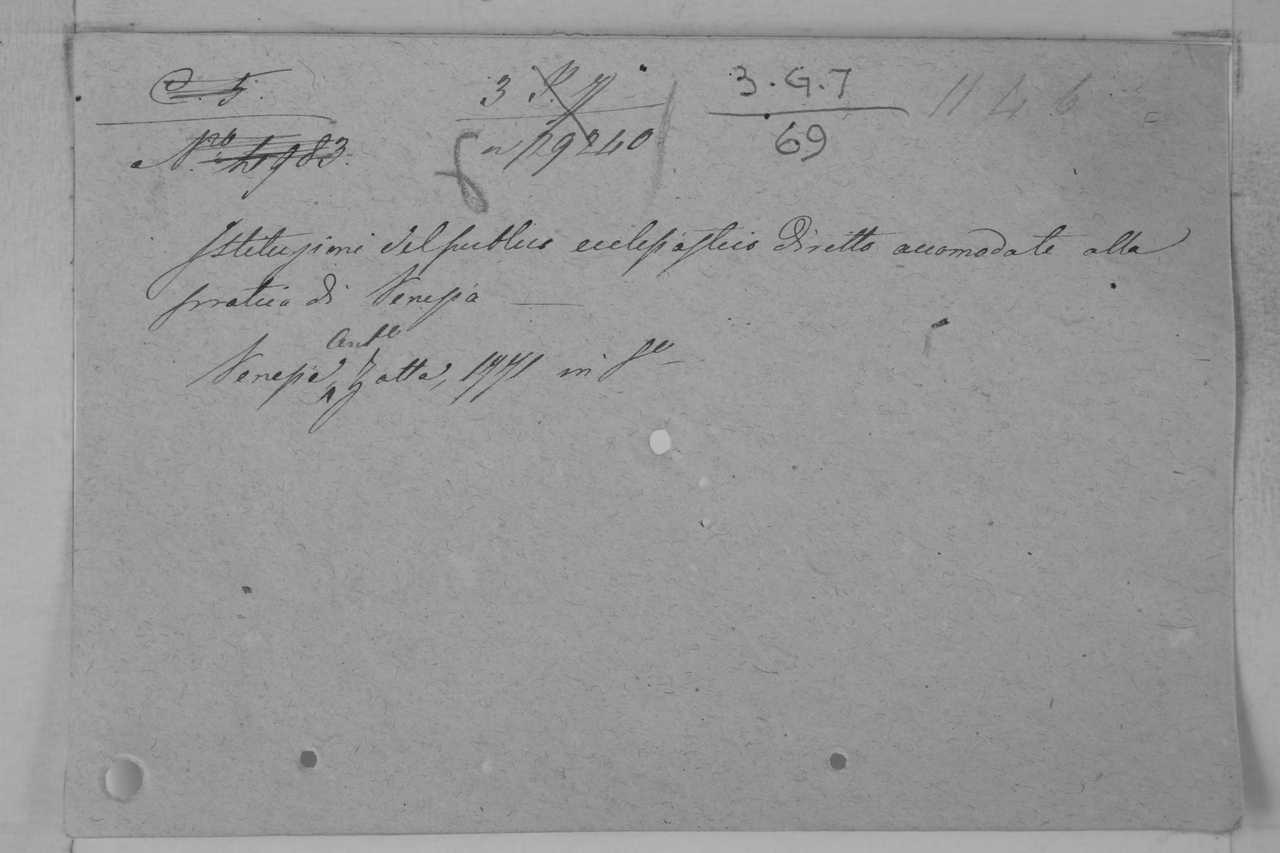 C. 5.
N.ro 4983.
3
n 29240
3.G.7
69
1146
Istituzioni del publico ecclesiastico Diritto accomodate alla
pratica di Venezia
Ant.o
Venezia, Zatta, 1771 in 8o